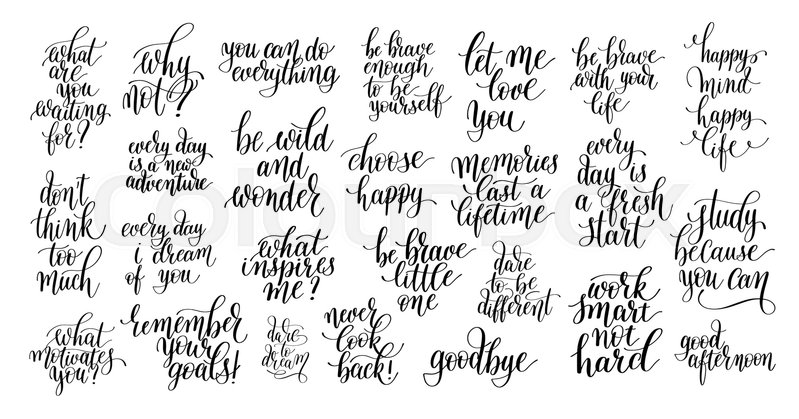 what
are
you
waiting
for?
why
not?
you can do
everything
be brave
enough
to be
yourself
let me
love
you
be brave
with your
life
happy
mind
happy
life
every day
is a new
adventure
be wild
and
wonder
choose
happy
memories
last a
lifetime
every
day is
a fresh
start
don't
think
too
much
every day
i dream
of you
what
inspires
me?
be brave
little
one
dare
to be
different
study
because
you can
what
motivates
you?
remember
your
goals!
dare
to
dream
never
look
back!
goodbye
work
smart
not
hard
good
afternoon
colourbox